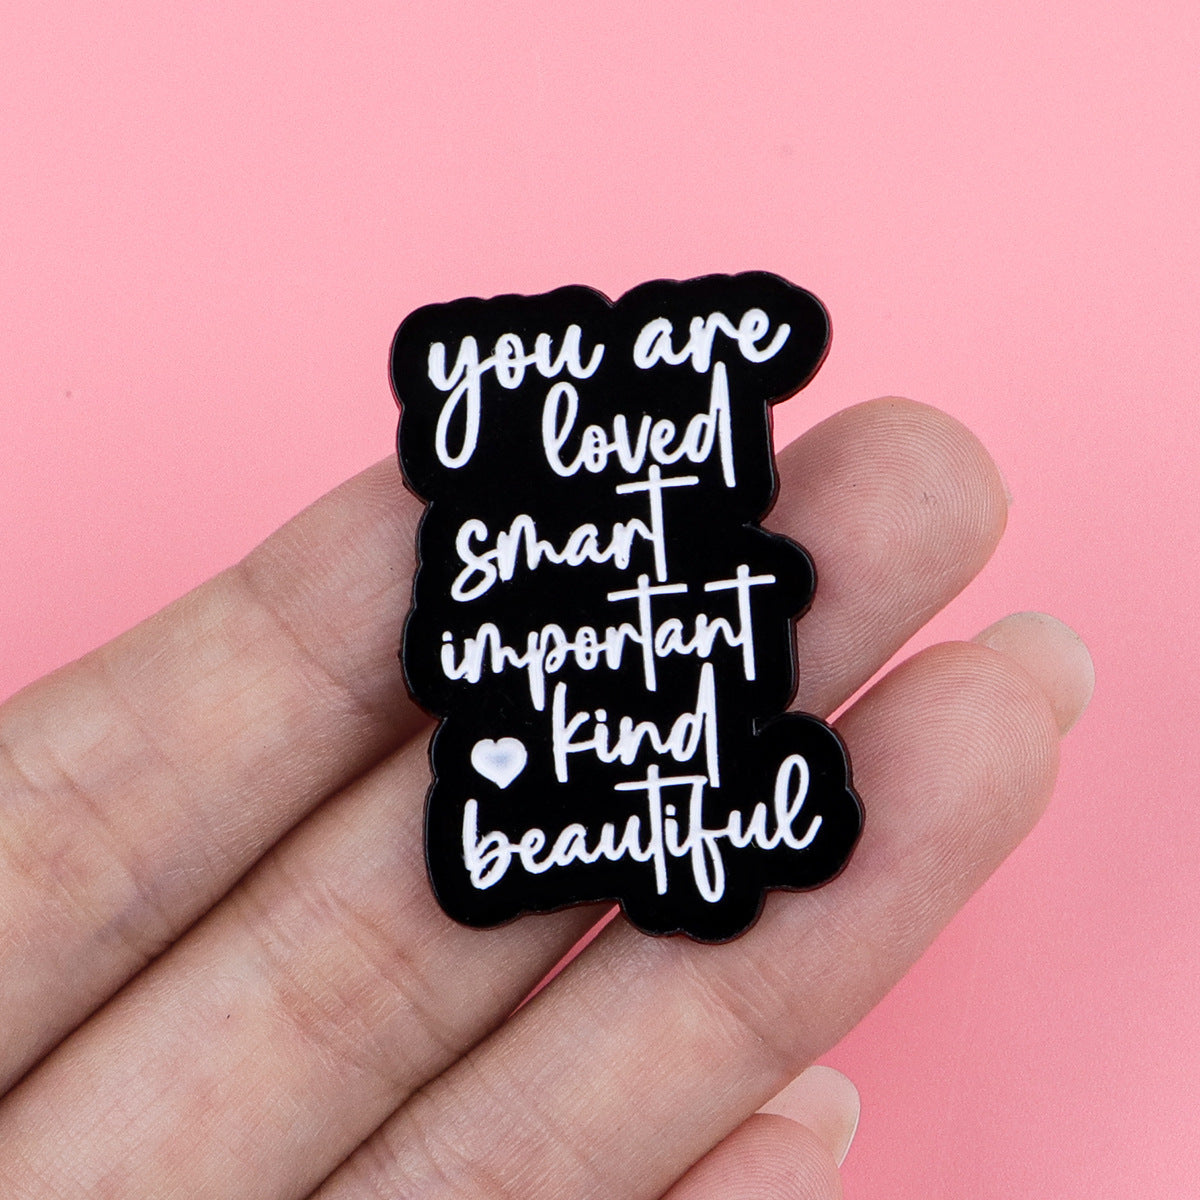 you are
loved
smart
important
kind
beautiful